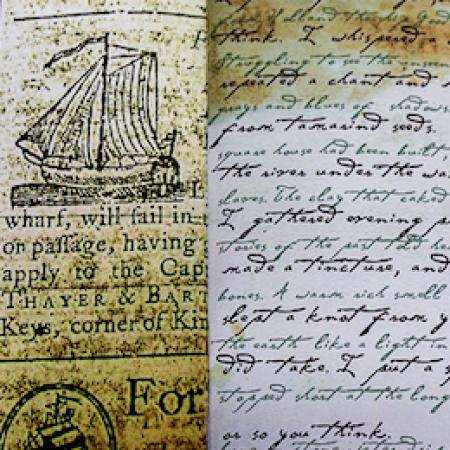 wharf, will ſail in
or paſſage, having
apply to the Cap
THAYER & BART
Keys, corner of Kin
For
think. I whispered a
Struggling to see the unseen
repeated a chant and
grays and blues of shadows
from tamarind seeds.
square house had been built,
the river under the wa
slaves. The clay that caked
I gathered evening
stories of the past
made a tincture, and
bones. A warm rich smell
slept a knot from y
the earth like a light in
did take. I put a
stopped short at the long
or so you think.